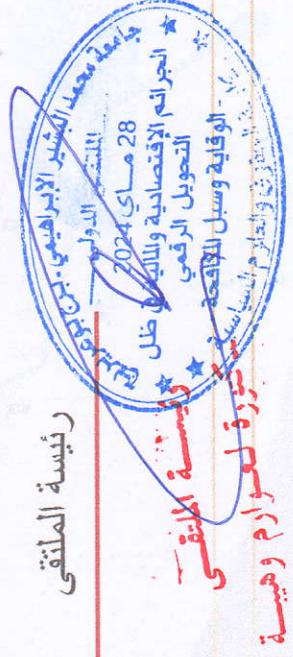 رئيسة الملتقى
جامعة محمد البشير الإبراهيمي - برج بوعريريج
الملتقى الدولي
28 ماي 2024
الجرائم الاقتصادية والمالية في ظل
التحويل الرقمي
- الوقاية وسبل المكافحة -
الحقوق والعلوم السياسية
رئيسة الملتقى
لعوارم وهيبة